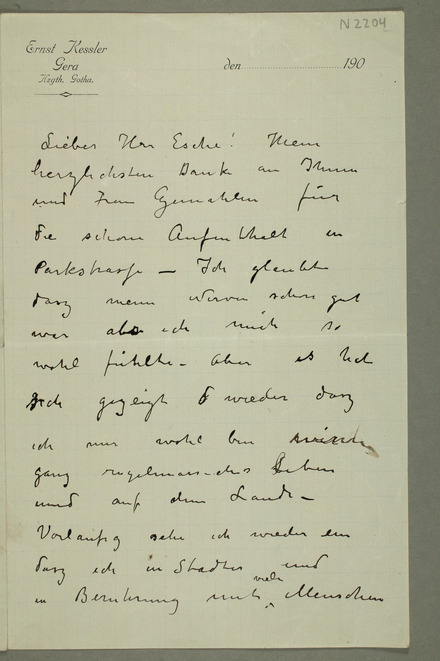 N2204
Ernst Kessler
Gera
Hzgth. Gotha.
den 190
Lieber Herr Esche! Mein
herzlichsten Dank an Ihnen
und Frau Gemahlin für
die schöne Aufenthalt in
Parkstrasse — Ich glaubte
dasz meine Nerven schon gut
war als ich mich so
wohl fühlte — Aber es hat
sich gezeigt wieder dasz
ich nur wohl bin
ganz regelmäs-ches Leben
und auf dem Lande —
Vorläufig sehe ich wieder ein
dasz ich in Städter und
in Berührung mit viele Menschen